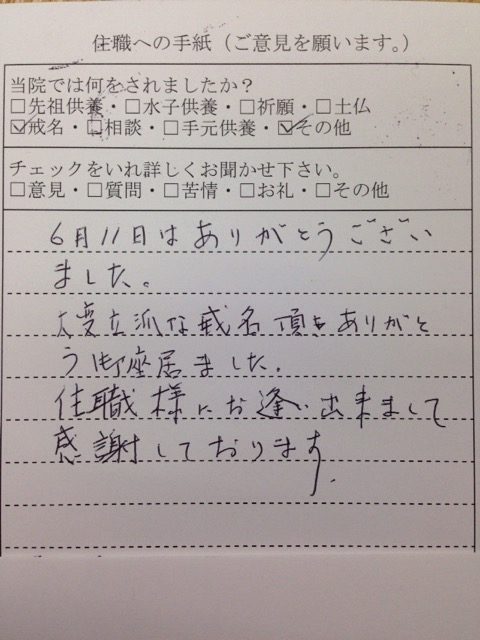 住職への手紙（ご意見を願います。）
当院では何をされましたか？
□先祖供養・□水子供養・□祈願・□土仏
☑戒名・□相談・□手元供養・☑その他
チェックをいれ詳しくお聞かせ下さい。
□意見・□質問・□苦情・□お礼・□その他
6月11日はありがとうござい
ました。
大変立派な戒名頂きありがと
う御座居ました.
住職様にお逢い出来まして
感謝しております.